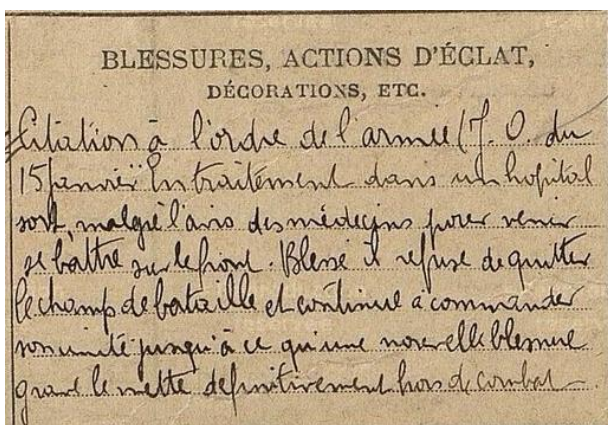 BLESSURES, ACTIONS D'ÉCLAT,
DÉCORATIONS, ETC.
Citation à l'ordre de l'armée (J. O. du
15 janvier "En traitement dans un hopital
sort, malgré l'avis des médecins pour venir
se battre sur le front. Blessé il refuse de quitter
le champ de bataille et continue à commander
son unité jusqu'à ce qu'une nouvelle blessure
grave le mette definitivement hors de combat -